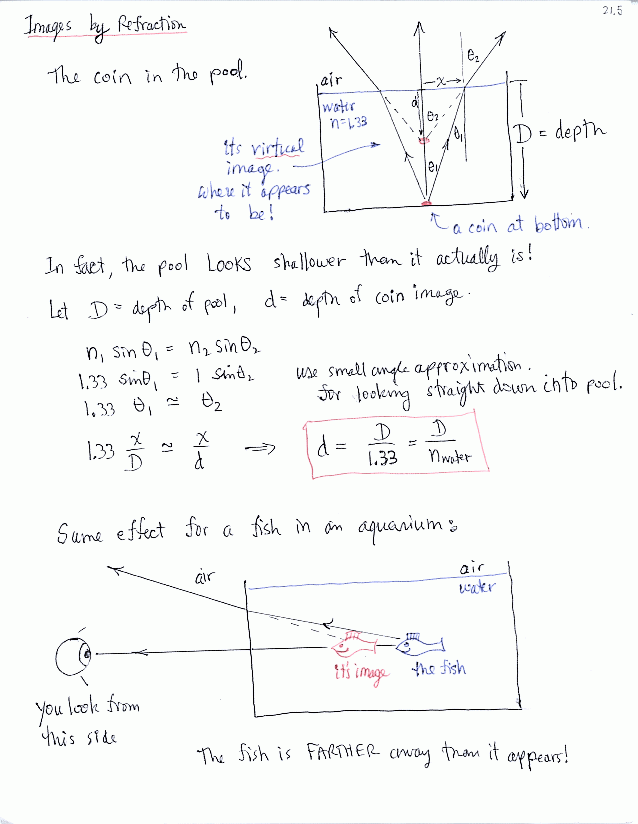 21.5
Images by Refraction
The coin in the pool.
air
water
n=1.33
x
d
θ₂
θ₂
θ₁
θ₁
D = depth
its virtical
image.
where it appears
to be!
a coin at bottom.
In fact, the pool LOOKS shallower than it actually is!
Let D = depth of pool, d = depth of coin image.
n₁ sin θ₁ = n₂ sin θ₂
1.33 sinθ₁ = 1 sinθ₂
use small angle approximation.
1.33 θ₁ ≃ θ₂
for looking straight down into pool.
1.33 x/D ≃ x/d ⇒ d = D/1.33 = D/n water
Same effect for a fish in an aquarium:
air
air
water
it's image
the fish
you look from
this side
The fish is FARTHER away than it appears!